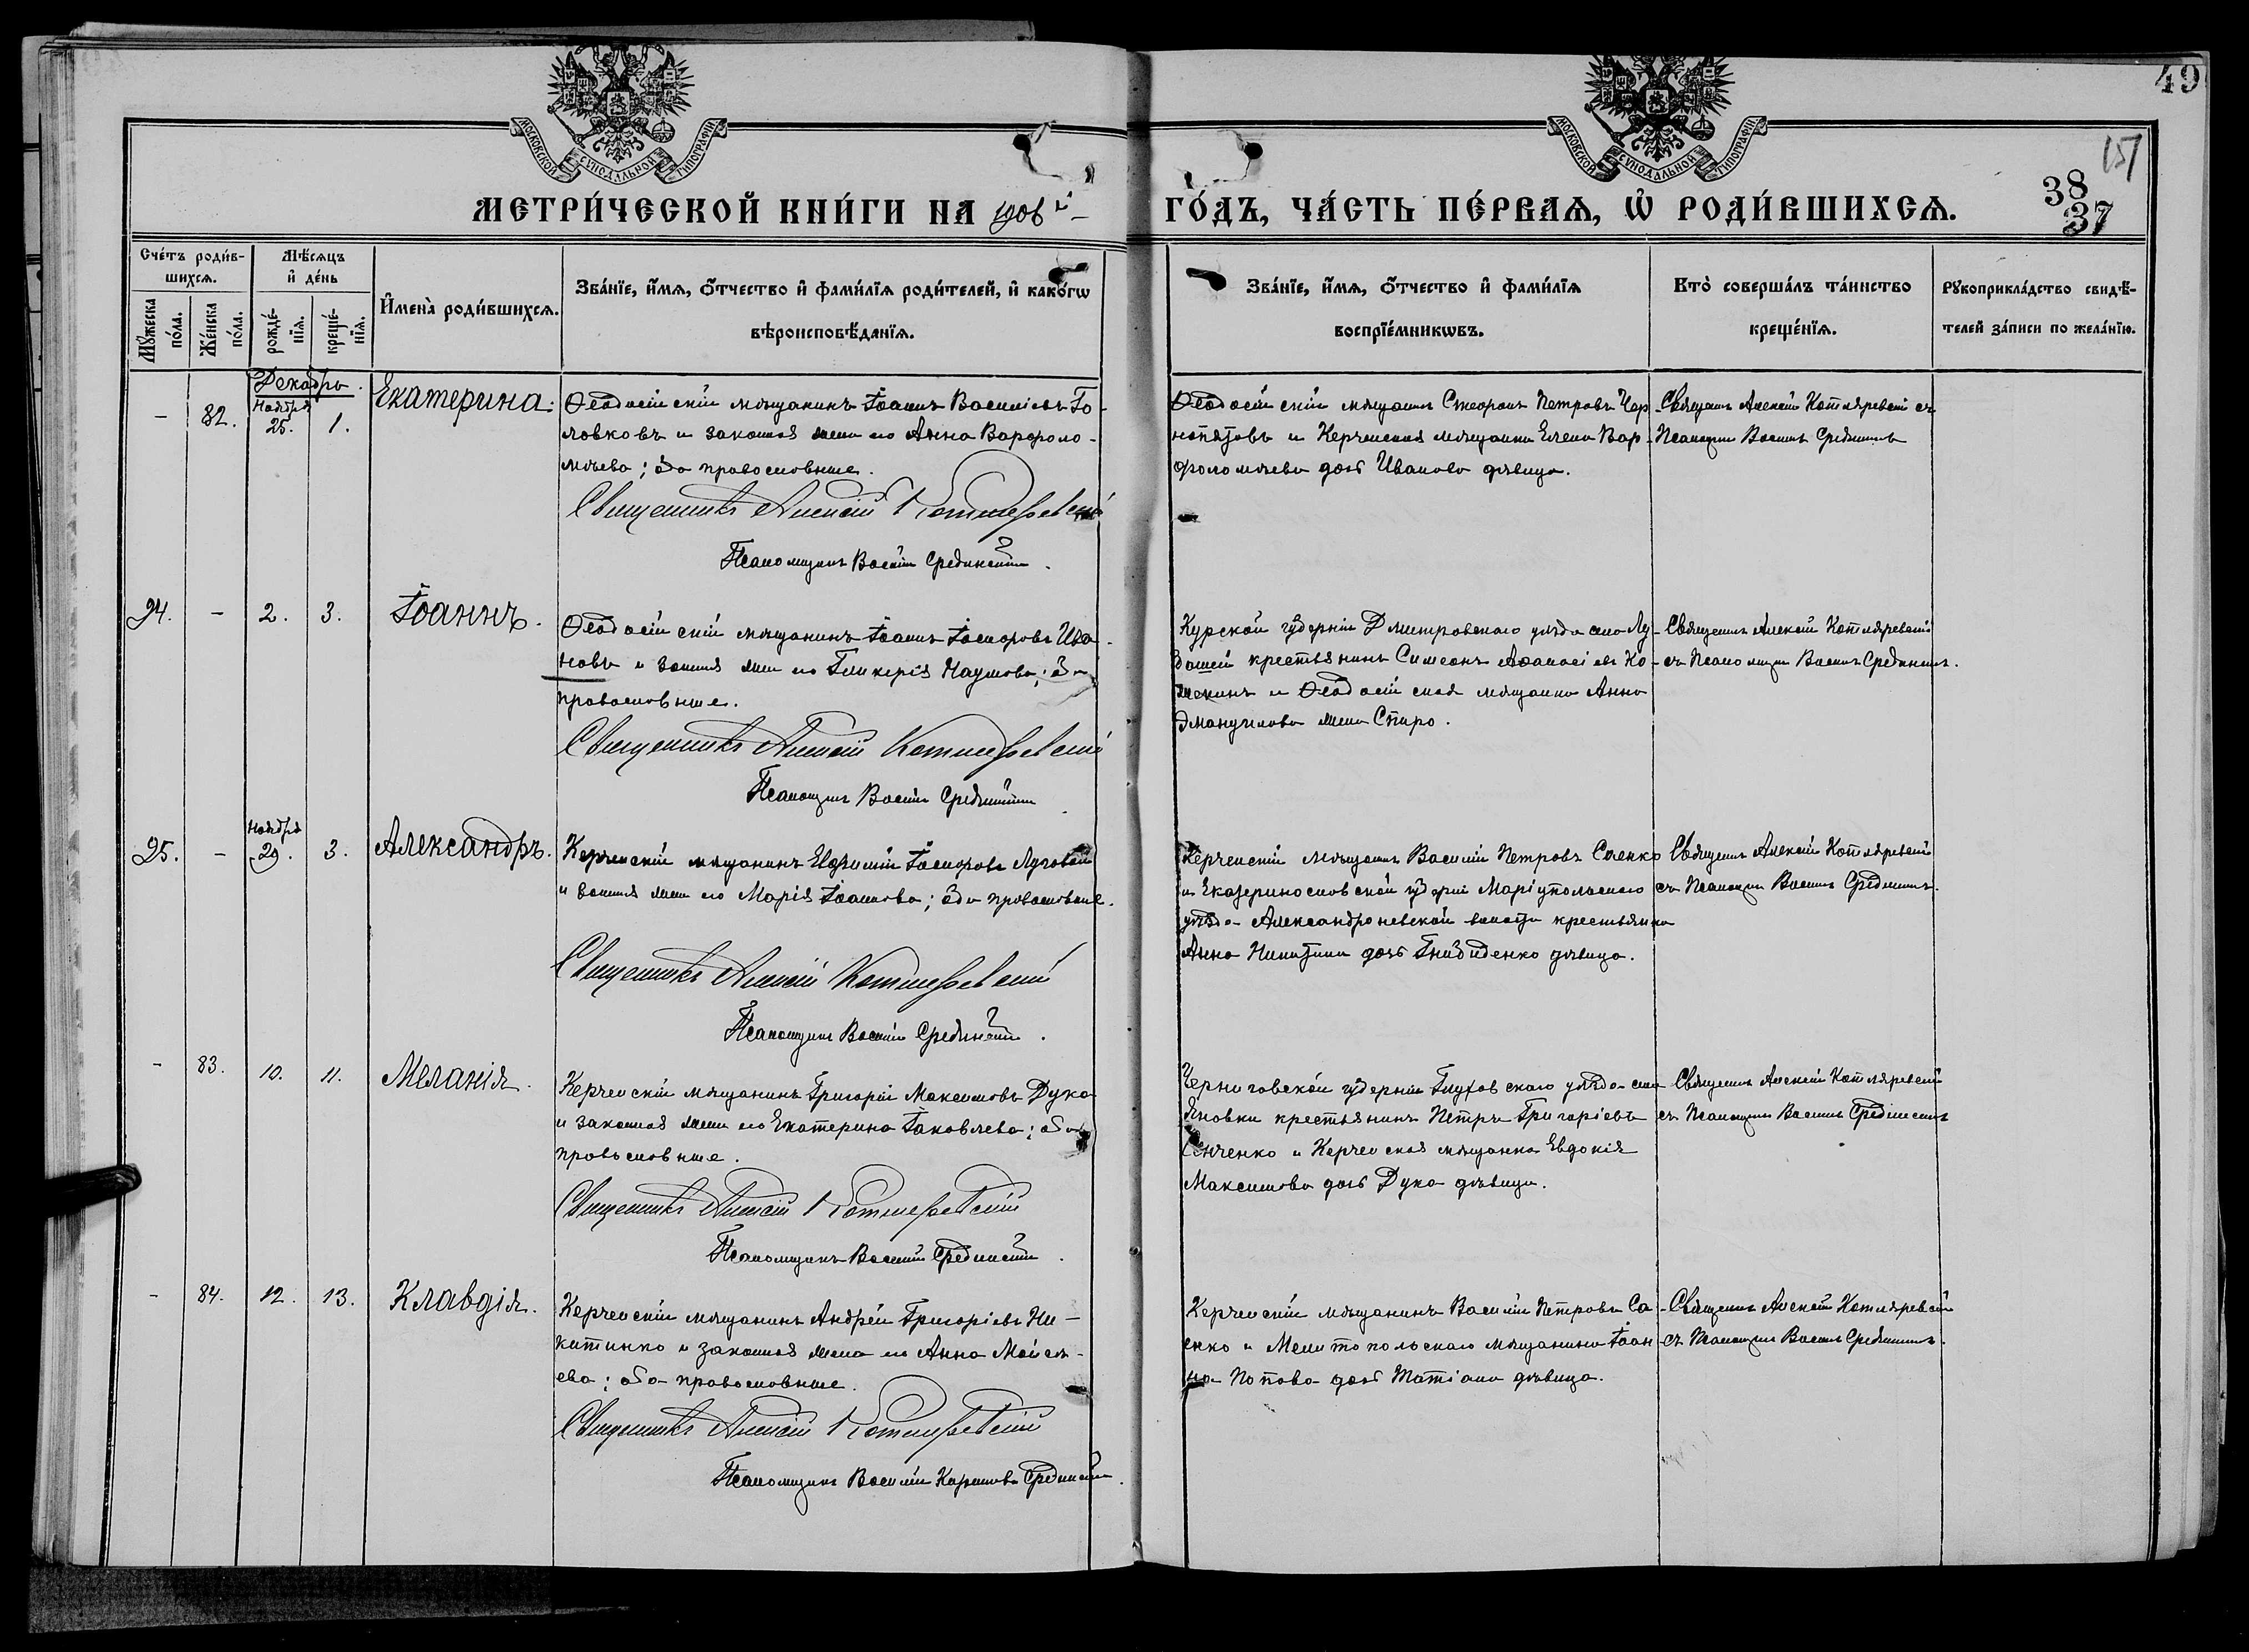 МОСКОВСКОЙ СУНОДАЛЬНОЙ ТИПОГРАФІИ
МОСКОВСКОЙ СУНОДАЛЬНОЙ ТИПОГРАФІИ
49
151
38
37
МЕТРИ́ЧЕСКОЙ КНИ́ГИ НА 1906й
ГО́ДЪ, ЧА́СТЬ ПЕ́РВАѦ, Ѡ҆ РОДИ́ВШИХСѦ.
Сче́тъ роди́в-
шихсѧ.
Мѣсѧцъ
и҆ де́нь
Мꙋ́жеска по́ла.
Же́нска по́ла.
рожде́-нїѧ.
креще́-нїѧ.
И҆мена̀ роди́вшихсѧ.
Зва́нїе, и҆́мѧ, ѻ҆́тчество и҆ фами́лїѧ роди́телей, и҆ како́гѡ
вѣроисповѣ́данїѧ.
Зва́нїе, и҆́мѧ, ѻ҆́тчество и҆ фами́лїѧ
воспрїе́мникѡвъ.
Кто̀ соверша́лъ та́инство
креще́нїѧ.
Рꙋкоприкла́дство свидѣ́-
телей за́писи по жела́нїю.
Декабрь.
- 82. Ноября 25. 1. Екатерина.
Ѳеодосійскій мѣщанинъ Іоаннъ Василіевъ Го-
ловковъ и законная жена его Анна Варфоло-
мѣева; оба православные.
Священникъ Алексій Котляревскій
Псаломщикъ Василій Срединскій.
Ѳеодосійскій мѣщанинъ Стефанъ Петровъ Чер-
нопятовъ и Керченская мѣщанка Елена Вар-
фоломѣева дочь Иванова дѣвица.
Священ. Алексій Котляревскій съ
Псаломщик. Василіемъ Срединскимъ
24. - 2. 3. Іоаннъ.
Ѳеодосійскій мѣщанинъ Іоаннъ Іосифовъ Ива-
новъ и законная жена его Гликерія Наумова; оба
православные.
Священникъ Алексій Котляревскій
Псаломщикъ Василій Срединскій
Курской губерніи Дмитровскаго уѣзда села Лу-
крестьянинъ Симеонъ Аѳанасіевъ Ко-
и Ѳеодосійская мѣщанка Анна
Эмануилова жена Спиро.
Священникъ Алексій Котляревскій
съ Псаломщик. Василіемъ Срединскимъ.
25. - Ноября 29. 3. Александръ.
Керченскій мѣщанинъ Евфимій Іосифовъ Луговой
и законная жена его Марія Іоаннова; оба православные.
Священникъ Алексій Котляревскій
Псаломщикъ Василій Срединскій.
Керченскій мѣщанинъ Василій Петровъ Саенко
и Екатеринославской губерніи Маріупольскаго
уѣзда Александроневской волости крестьянка
Анна Никитина дочь Гнибиденко дѣвица.
Священникъ Алексій Котляревскій
съ Псаломщик. Василіемъ Срединскимъ.
- 83. 10. 11. Меланія.
Керченскій мѣщанинъ Григорій Максимовъ Дука
и законная жена его Екатерина Іаковлева; оба
православные.
Священникъ Алексій Котляревскій
Псаломщикъ Василій Срединскій.
Черниговской губерніи Глуховскаго уѣзда села
Яновки крестьянинъ Петръ Григоріевъ
Сенченко и Керченская мѣщанка Евдокія
Максимова дочь Дука дѣвица.
Священникъ Алексій Котляревскій
съ Псаломщик. Василіемъ Срединскимъ
- 84. 12. 13. Клавдія.
Керченскій мѣщанинъ Андрей Григоріевъ Ни-
китинко и законная жена его Анна Моисе-
ева; оба православные.
Священникъ Алексій Котляревскій
Псаломщикъ Василій Срединскій.
Керченскій мѣщанинъ Василій Петровъ Са-
енко и Мелитопольскаго мѣщанина Іоан-
на Попова дочь Татіана дѣвица.
Священникъ Алексій Котляревскій
съ Псаломщик. Василіемъ Срединскимъ.